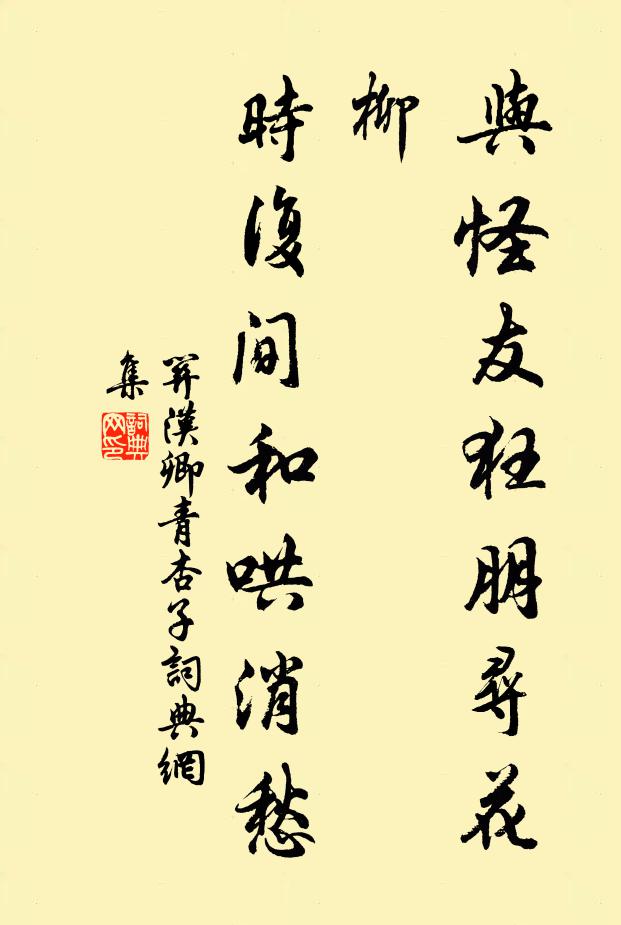 與怪友狂朋尋花
柳
時復間和哄消愁
關漢卿青杏子詞典網
集
詞典
网印